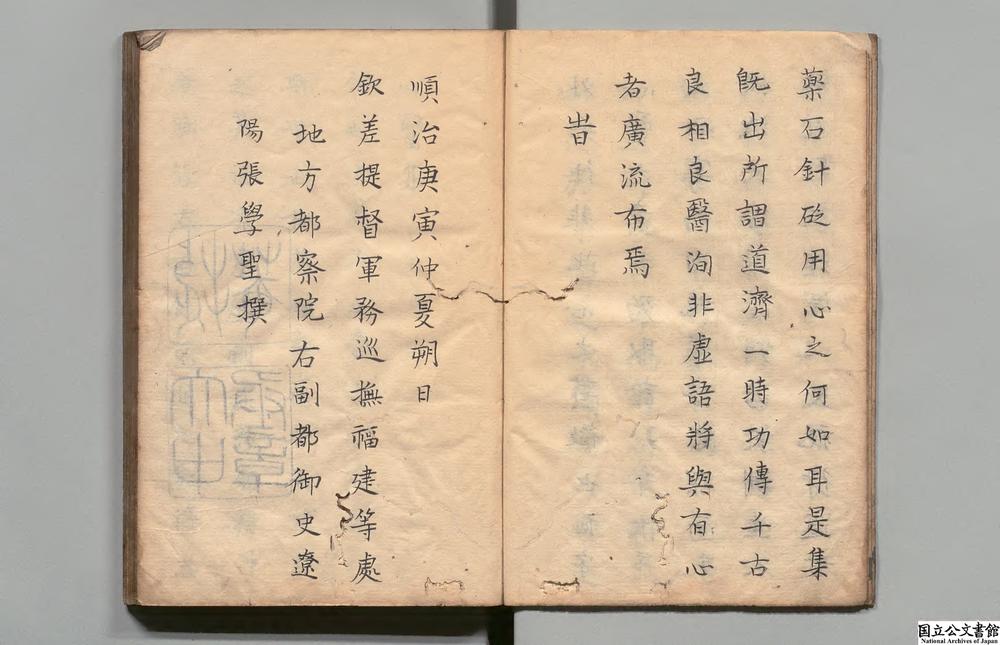 藥石針砭用忘之何如耳是集
旣出所謂道濟一時功傳千古
良相良醫洵非虛語將與有心
者廣流布焉
旹
順治庚寅仲夏朔日
欽差提督軍務巡撫福建等處
地方都察院右副都御史遼
陽張學聖撰
国立公文書館
National Archives of Japan